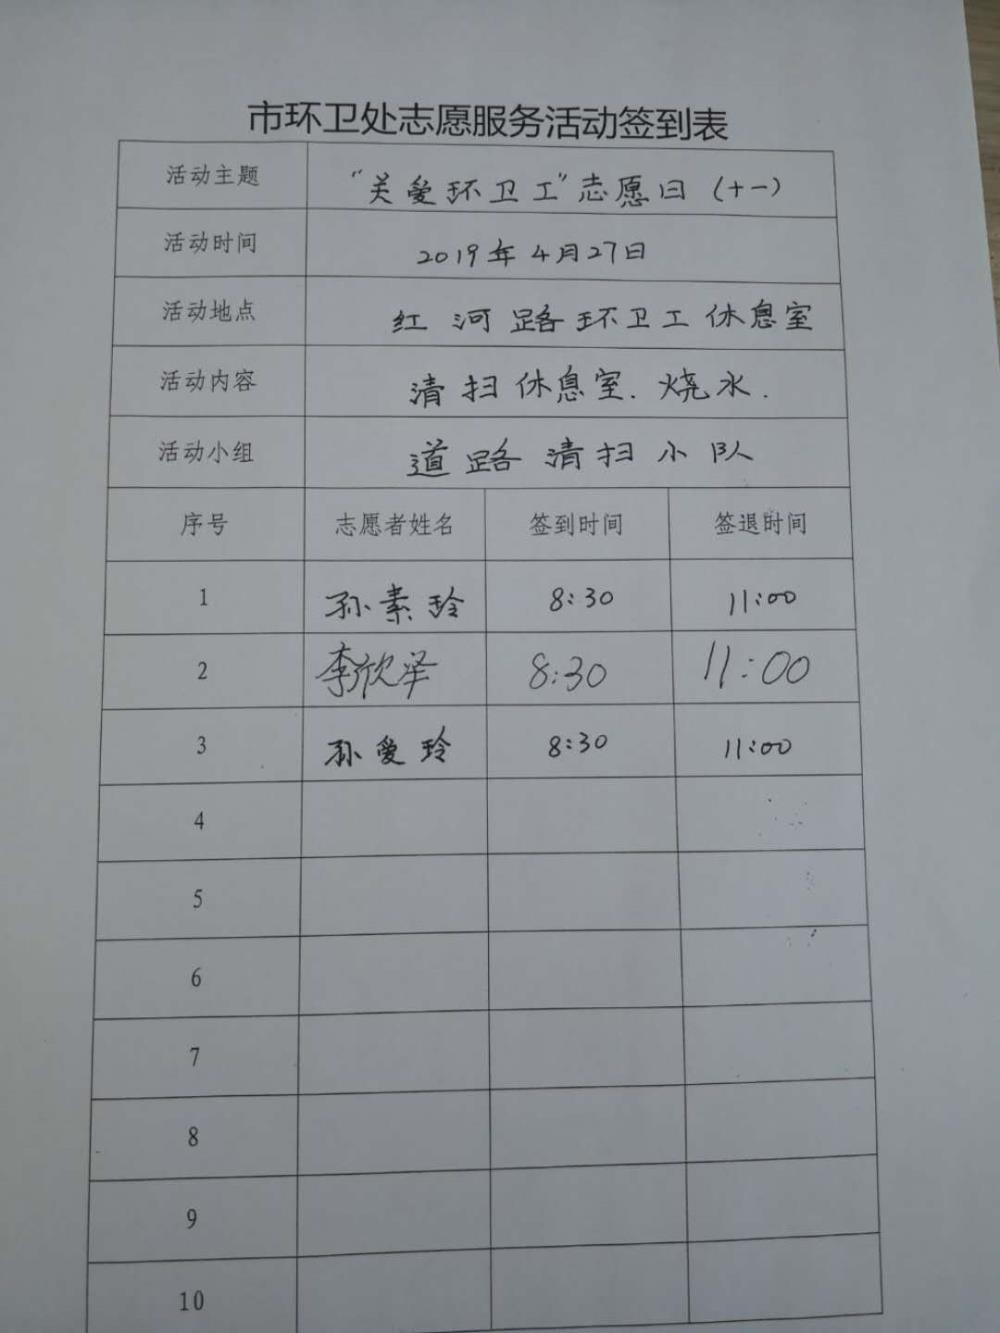 市环卫处志愿服务活动签到表
活动主题 “关爱环卫工”志愿日（十一）
活动时间 2019年4月27日
活动地点 红河路环卫工休息室
活动内容 清扫休息室.烧水.
活动小组 道路清扫小队
序号 志愿者姓名 签到时间 签退时间
1 孙素玲 8:30 11:00
2 李欣泽 8:30 11:00
3 孙爱玲 8:30 11:00
4
5
6
7
8
9
10